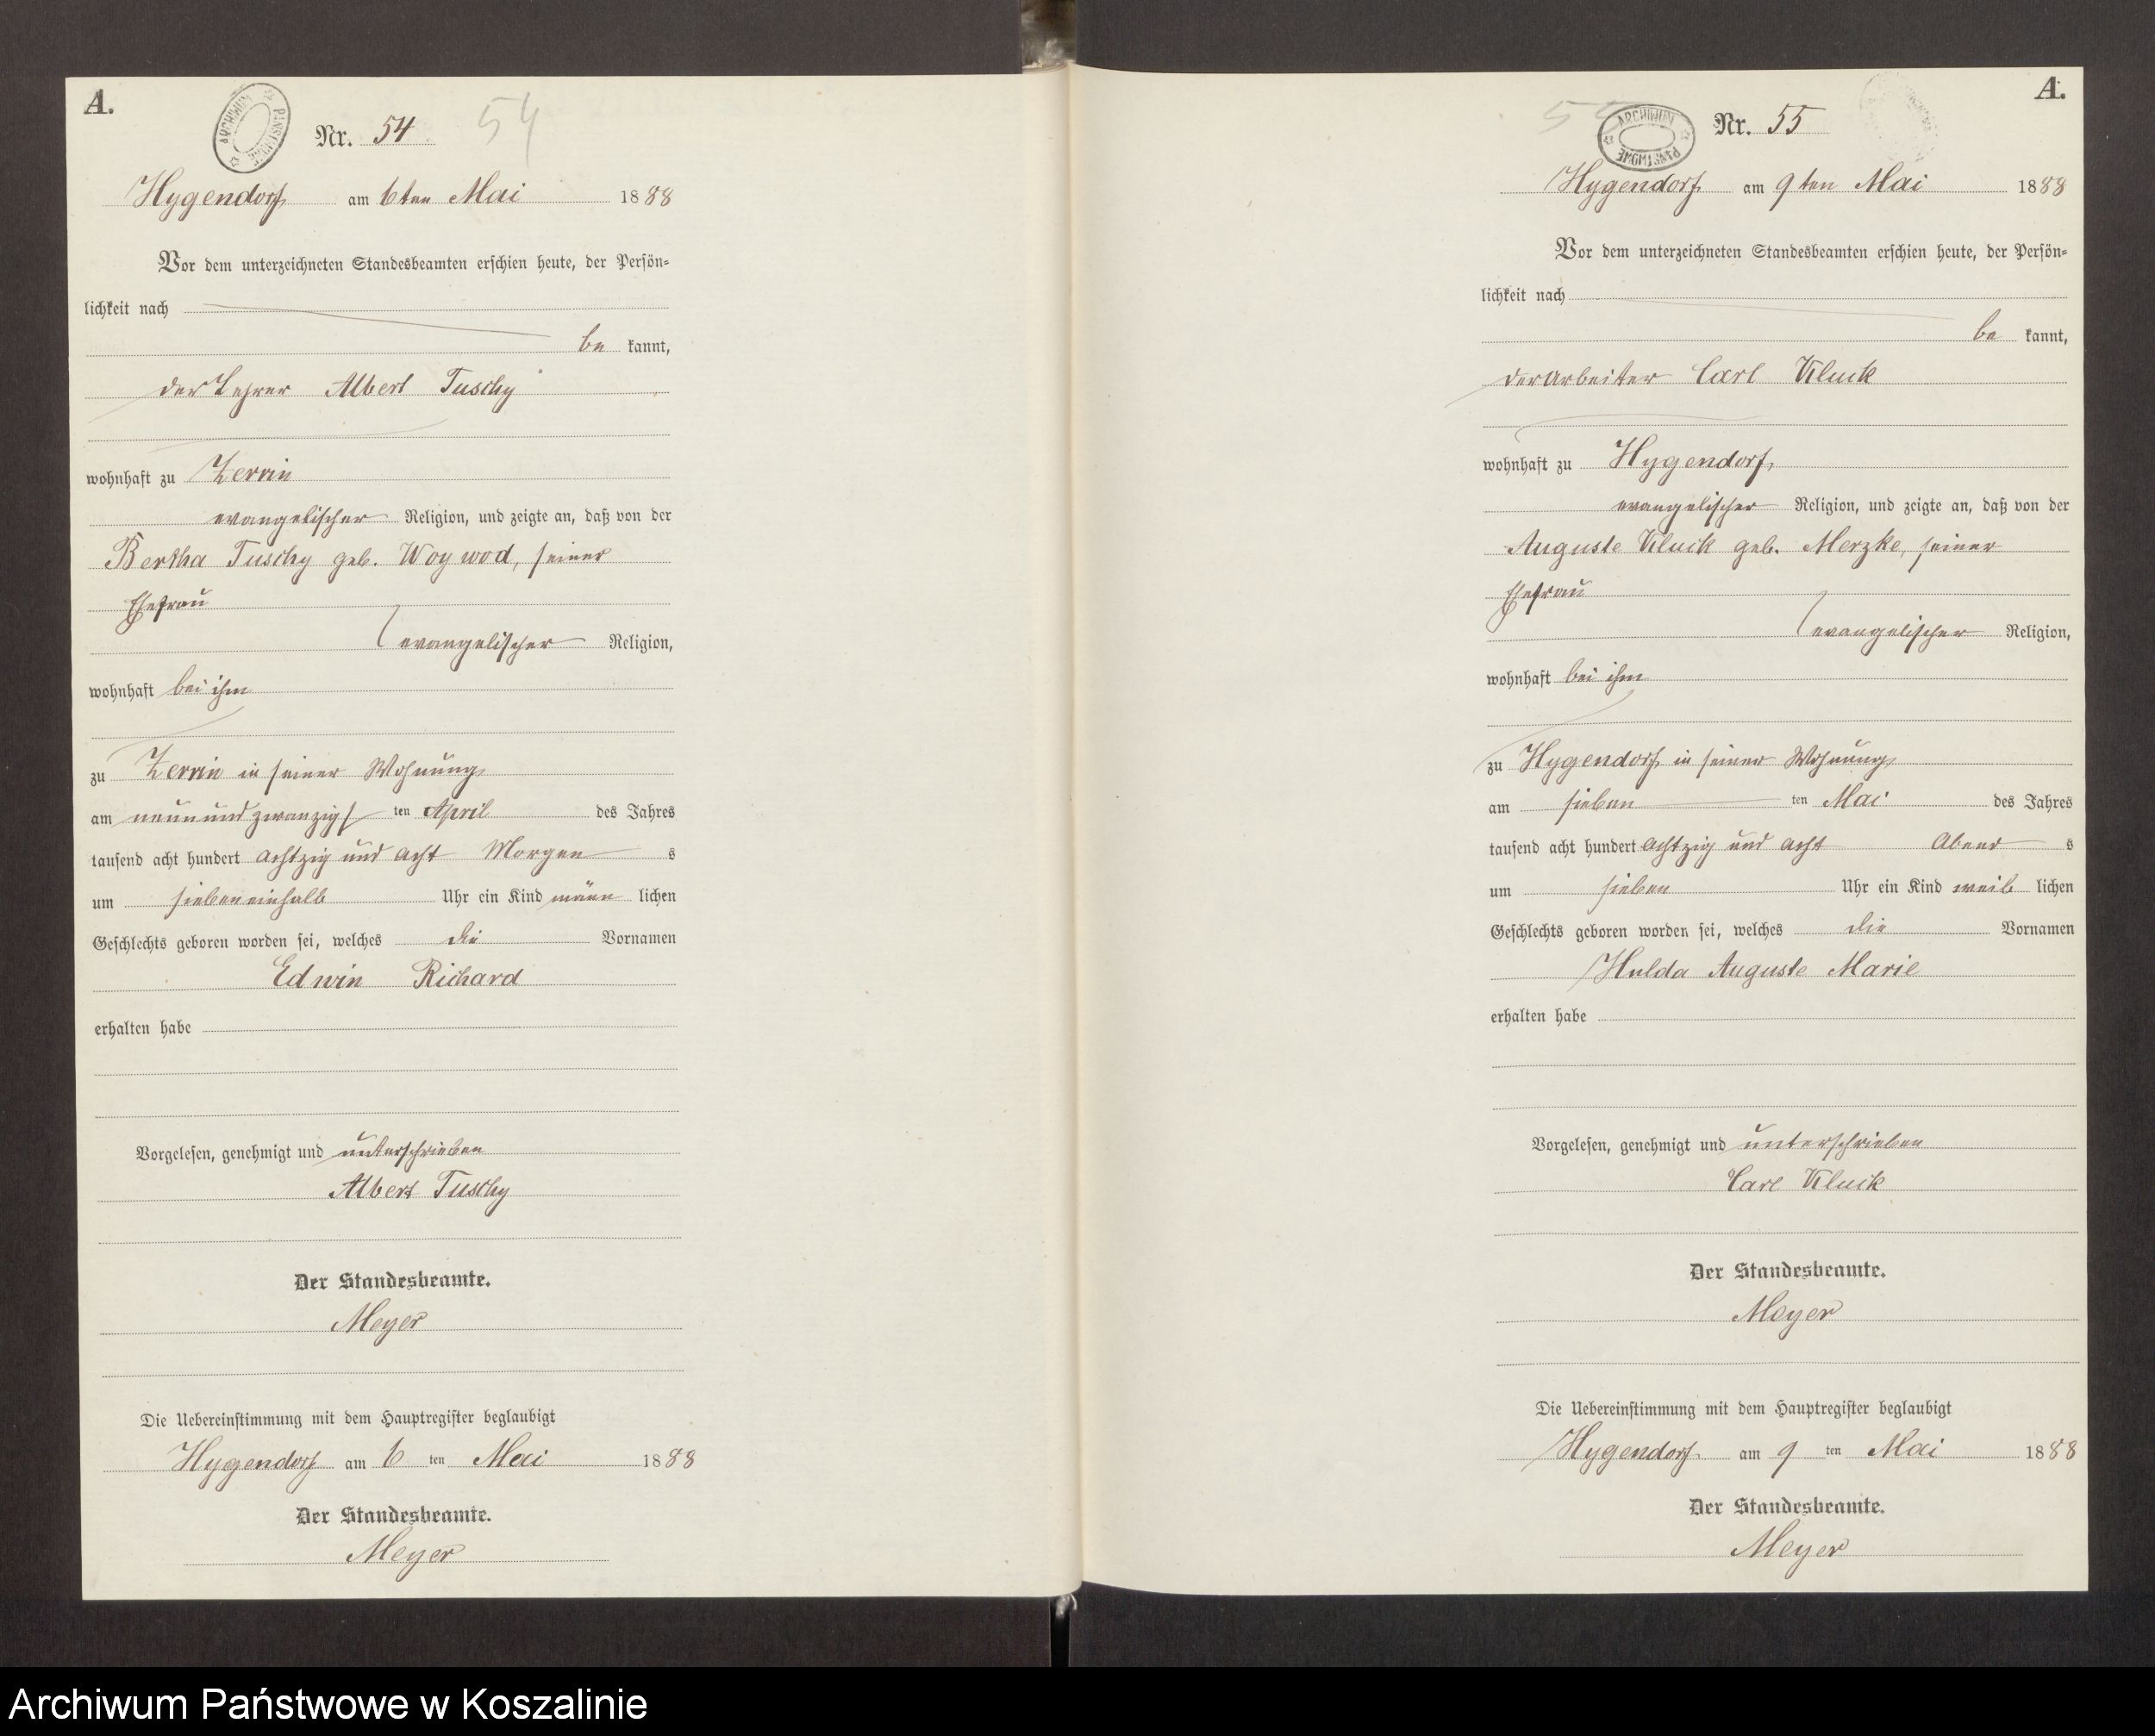 A.
ARCHIWUM PAŃSTWOWE
Nr. 54
54
Hygendorf am 6ten Mai 1888
Vor dem unterzeichneten Standesbeamten erschien heute, der Persön-
lichkeit nach
be kannt,
der Lehrer Albert Tuschy
wohnhaft zu Zerrin
evangelischer Religion, und zeigte an, daß von der
Bertha Tuschy geb. Woywod, seiner
Ehefrau
evangelischer Religion,
wohnhaft bei ihm
zu Zerrin in seiner Wohnung
am neunundzwanzigsten April des Jahres
tausend acht hundert achtzig und acht Morgen s
um siebeneinhalb Uhr ein Kind männ lichen
Geschlechts geboren worden sei, welches die Vornamen
Edwin Richard
erhalten habe
Vorgelesen, genehmigt und unterschrieben
Albert Tuschy
Der Standesbeamte.
Meyer
Die Uebereinstimmung mit dem Hauptregister beglaubigt
Hygendorf am 6 ten Mai 1888
Der Standesbeamte.
Meyer
A.
55
ARCHIWUM PAŃSTWOWE
Nr. 55
Hygendorf am 9ten Mai 1888
Vor dem unterzeichneten Standesbeamten erschien heute, der Persön-
lichkeit nach
be kannt,
der Arbeiter Carl Kluck
wohnhaft zu Hygendorf
evangelischer Religion, und zeigte an, daß von der
Auguste Kluck geb. Merzke, seiner
Ehefrau
evangelischer Religion,
wohnhaft bei ihm
zu Hygendorf in seiner Wohnung
am sieben ten Mai des Jahres
tausend acht hundert achtzig und acht Abend s
um sieben Uhr ein Kind weib lichen
Geschlechts geboren worden sei, welches die Vornamen
Hulda Auguste Marie
erhalten habe
Vorgelesen, genehmigt und unterschrieben
Carl Kluck
Der Standesbeamte.
Meyer
Die Uebereinstimmung mit dem Hauptregister beglaubigt
Hygendorf am 9 ten Mai 1888
Der Standesbeamte.
Meyer
Archiwum Państwowe w Koszalinie